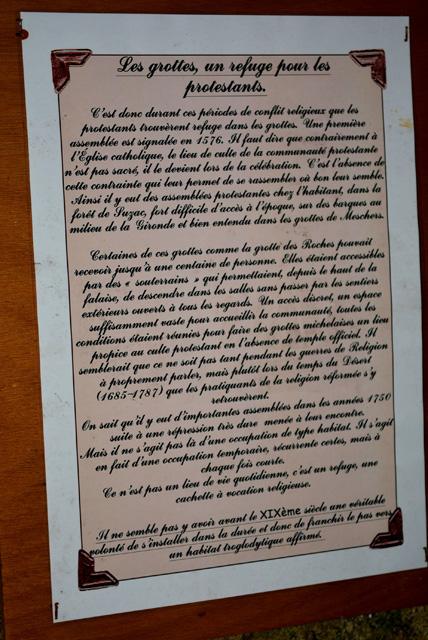 Les grottes, un refuge pour les
protestants.
C'est donc durant ces périodes de conflit religieux que les
protestants trouvèrent refuge dans les grottes. Une première
assemblée est signalée en 1576. Il faut dire que contrairement à
l'Eglise catholique, le lieu de culte de la communauté protestante
n'est pas sacré, il le devient lors de la célébration. C'est l'absence de
cette contrainte qui leur permet de se rassembler où bon leur semble.
Ainsi il y eut des assemblées protestantes chez l'habitant, dans la
forêt de Suzac, fort difficile d'accès à l'époque, sur des barques au
milieu de la Gironde et bien entendu dans les grottes de Meschers.
Certaines de ces grottes comme la grotte des Roches pouvait
recevoir jusqu'à une centaine de personne. Elles étaient accessibles
par des « souterrains » qui permettaient, depuis le haut de la
falaise, de descendre dans les salles sans passer par les sentiers
extérieurs ouverts à tous les regards. Un accès discret, un espace
suffisamment vaste pour accueillir la communauté, toutes les
conditions étaient réunies pour faire des grottes michelaises un lieu
propice au culte protestant en l'absence de temple officiel. Il
semblerait que ce ne soit pas tant pendant les guerres de Religion
à proprement parler, mais plutôt lors du temps du Désert
(1685-1787) que les pratiquants de la religion réformée s'y
retrouvèrent.
On sait qu'il y eut d'importantes assemblées dans les années 1750
suite à une répression très dure menée à leur encontre.
Mais il ne s'agit pas là d'une occupation de type habitat. Il s'agit
en fait d'une occupation temporaire, récurrente certes, mais à
chaque fois courte.
Ce n'est pas un lieu de vie quotidienne, c'est un refuge, une
cachette à vocation religieuse.
Il ne semble pas y avoir avant le XIXème siècle une véritable
volonté de s'installer dans la durée et donc de franchir le pas vers
un habitat troglodytique affirmé.